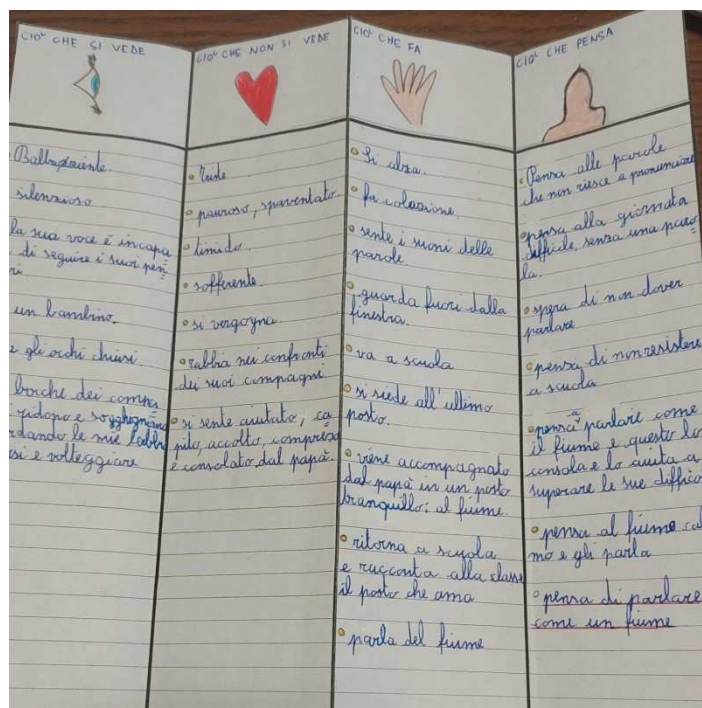 CIO' CHE SI VEDE
Balbuziente.
silenzioso
la sua voce è incapa
di seguire i suoi pen
ri
un bambino.
gli occhi chiusi.
bocche dei compa
ridono e sogghignano
rdando le mie labbra
si e volteggiare
CIO' CHE NON SI VEDE
• Triste
• pauroso, spaventato.
• timido.
• sofferente.
• si vergogna
• rabbia nei confronti
dei suoi compagni.
• si sente aiutato, ca
pito, accolto, compreso
e consolato dal papà.
CIO' CHE FA
• Si alza.
• fa colazione
• sente i suoni delle
parole.
• guarda fuori dalla
finestra.
• va a scuola
• si siede all'ultimo
posto.
• viene accompagnato
dal papà in un posto
tranquillo: al fiume.
• ritorna a scuola
e racconta alla classe
il posto che ama
• parla del fiume
CIO' CHE PENSA
• Pensa alle parole
che non riesce a pronunciare
• pensa alla giornata
difficile, senza una paro
la.
• spera di non dover
parlare
• pensa di non resistere
a scuola
• pensa a parlare come
il fiume e questo lo
consola e lo aiuta a
superare le sue diffico
• pensa al fiume cal
mo e gli parla
• pensa di parlare
come un fiume